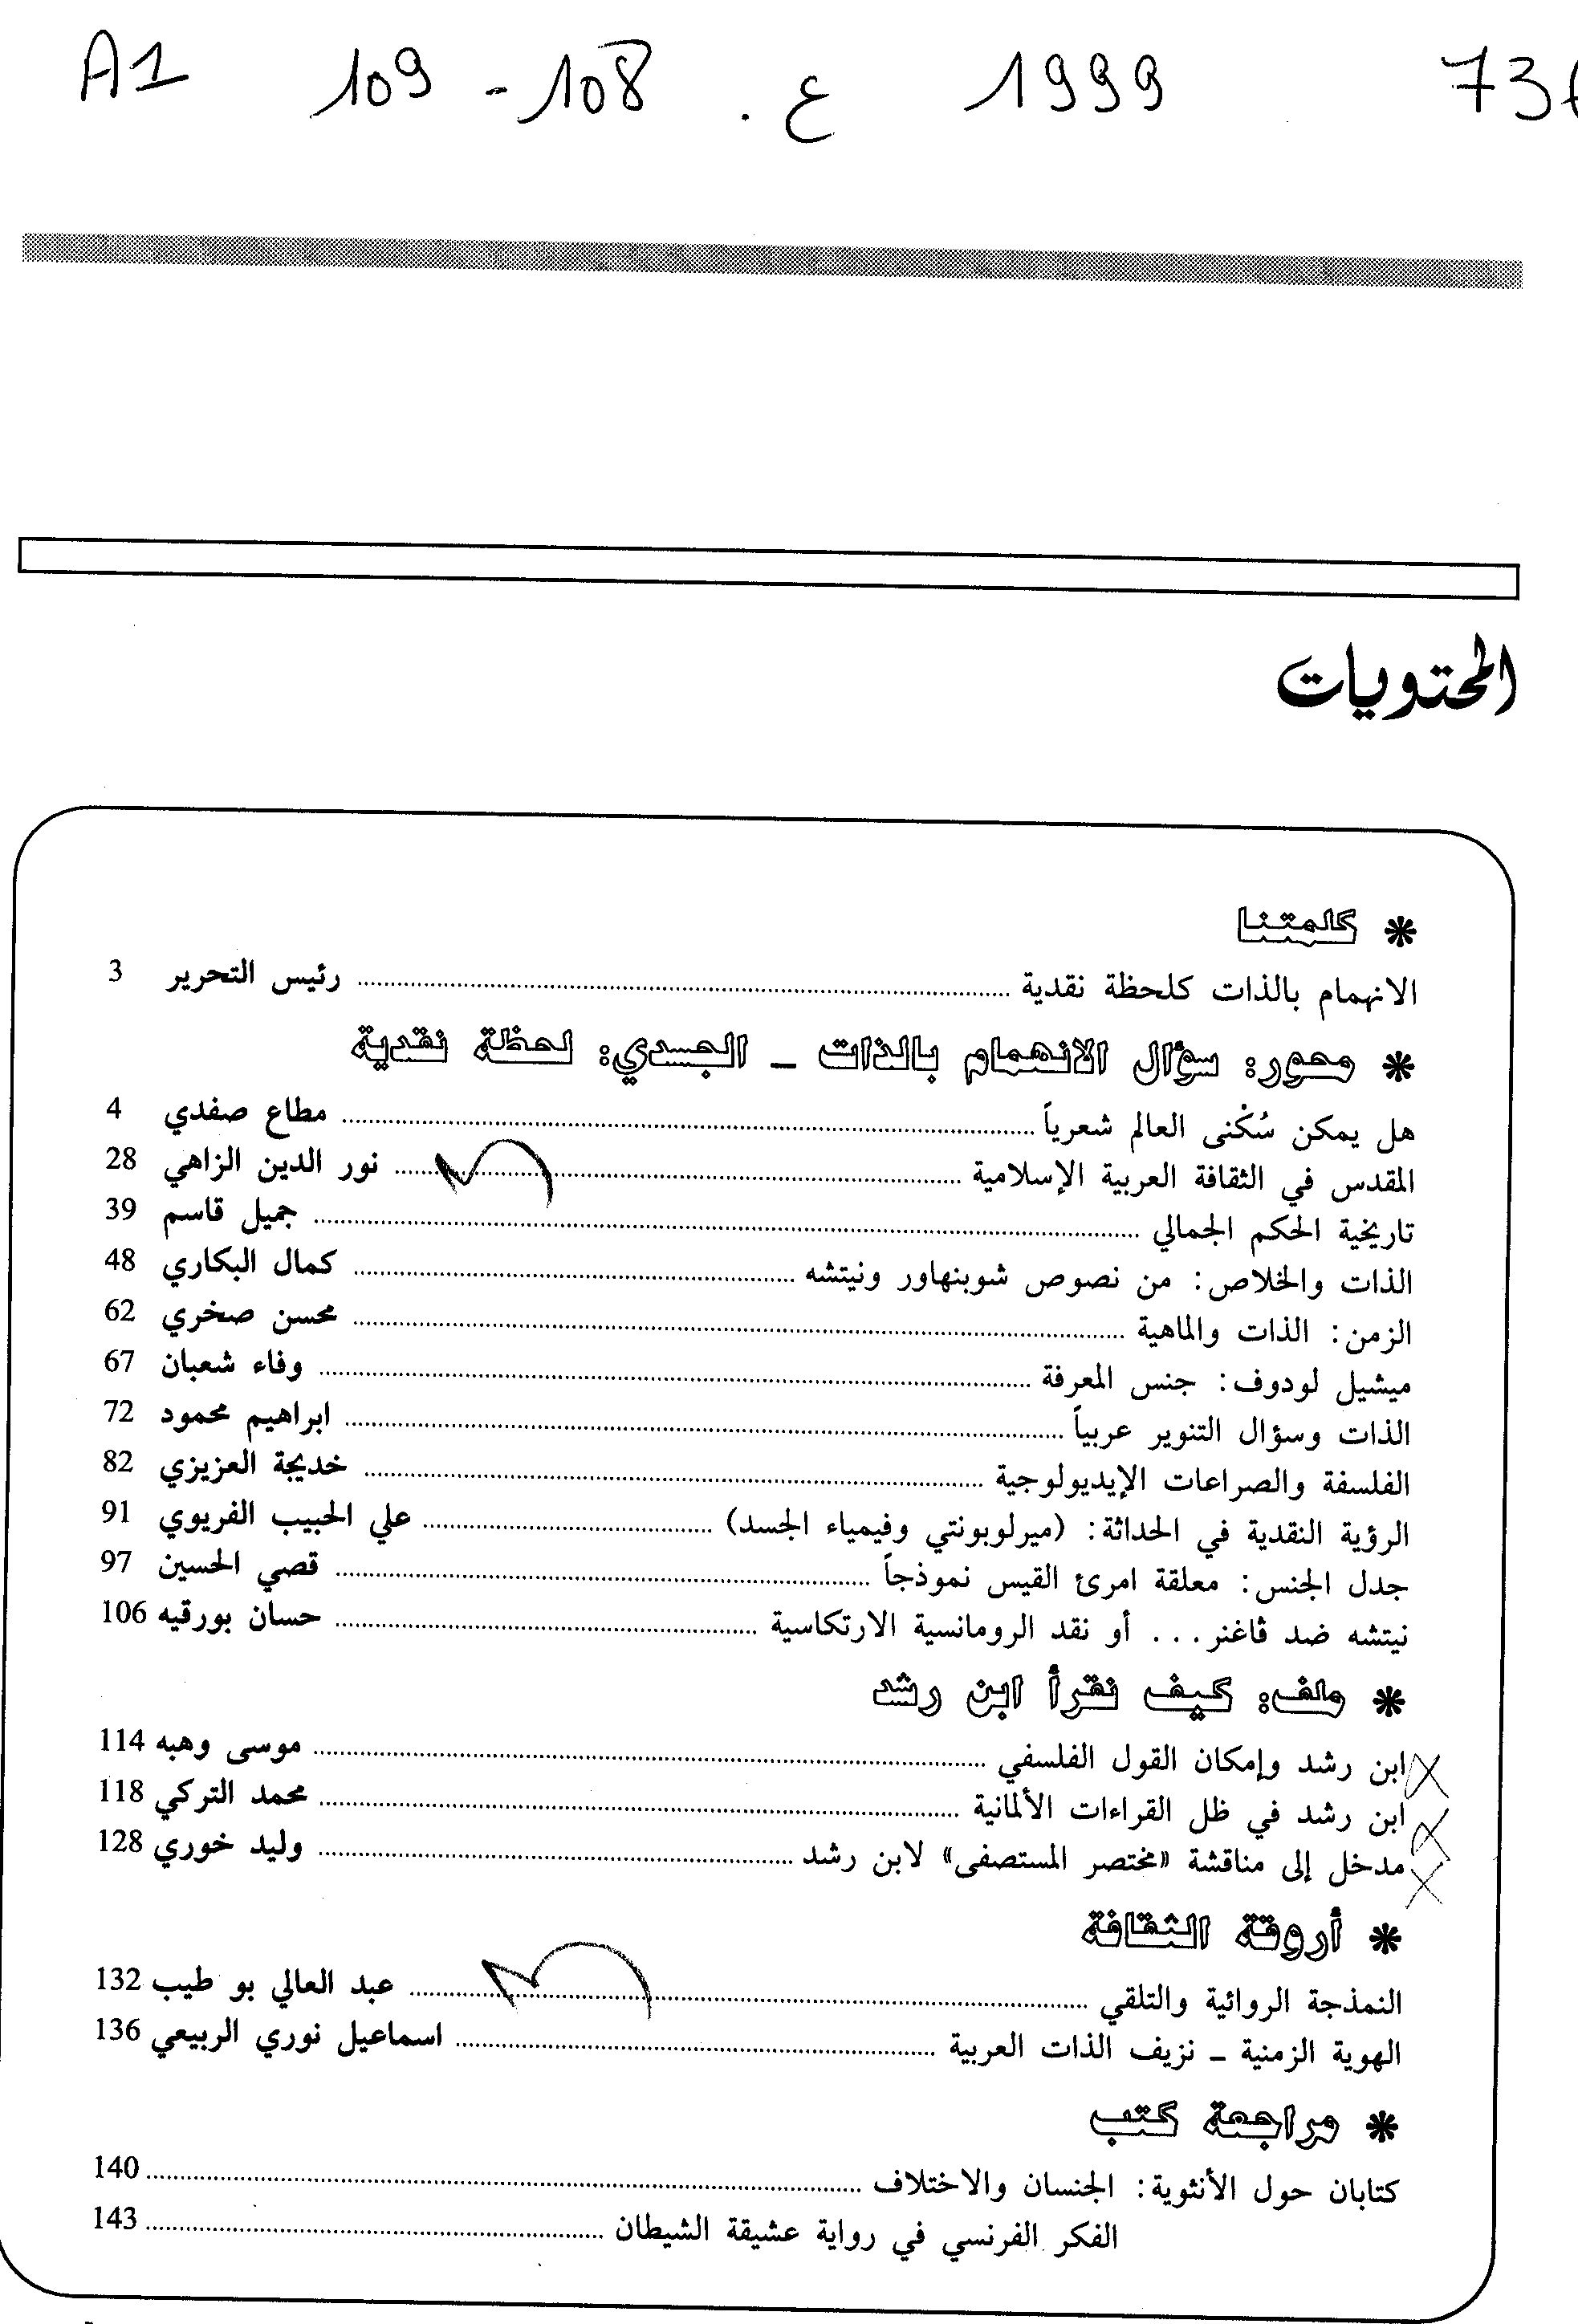 A1 109 - 108 ع. 1999
المحتويات
* كلمتنا
الانهمام بالذات كلحظة نقدية ........ رئيس التحرير 3
* محور: سؤال الانهمام بالذات ـ الجسدي: لحظة نقدية
هل يمكن سُكْنى العالم شعرياً ........ مطاع صفدي 4
المقدس في الثقافة العربية الإسلامية ........ نور الدين الزاهي 28
تاريخية الحكم الجمالي ........ جميل قاسم 39
الذات والخلاص: من نصوص شوبنهاور ونيتشه ........ كمال البكاري 48
الزمن: الذات والماهية ........ محسن صخري 62
ميشيل لودوف: جنس المعرفة ........ وفاء شعبان 67
الذات وسؤال التنوير عربياً ........ ابراهيم محمود 72
الفلسفة والصراعات الإيديولوجية ........ خديجة العزيزي 82
الرؤية النقدية في الحداثة: (ميرلوبونتي وفيمياء الجسد) ........ علي الحبيب الفريوي 91
جدل الجنس: معلقة امرئ القيس نموذجاً ........ قصي الحسين 97
نيتشه ضد ڤاغنر... أو نقد الرومانسية الارتكاسية ........ حسان بورقيه 106
* ملف: كيف نقرأ ابن رشد
ابن رشد وإمكان القول الفلسفي ........ موسى وهبه 114
ابن رشد في ظل القراءات الألمانية ........ محمد التركي 118
مدخل إلى مناقشة «مختصر المستصفى» لابن رشد ........ وليد خوري 128
* أروقة الثقافة
النمذجة الروائية والتلقي ........ عبد العالي بو طيب 132
الهوية الزمنية ـ نزيف الذات العربية ........ اسماعيل نوري الربيعي 136
* مراجعة كتب
كتابان حول الأنثوية: الجنسان والاختلاف ........ 140
الفكر الفرنسي في رواية عشيقة الشيطان ........ 143